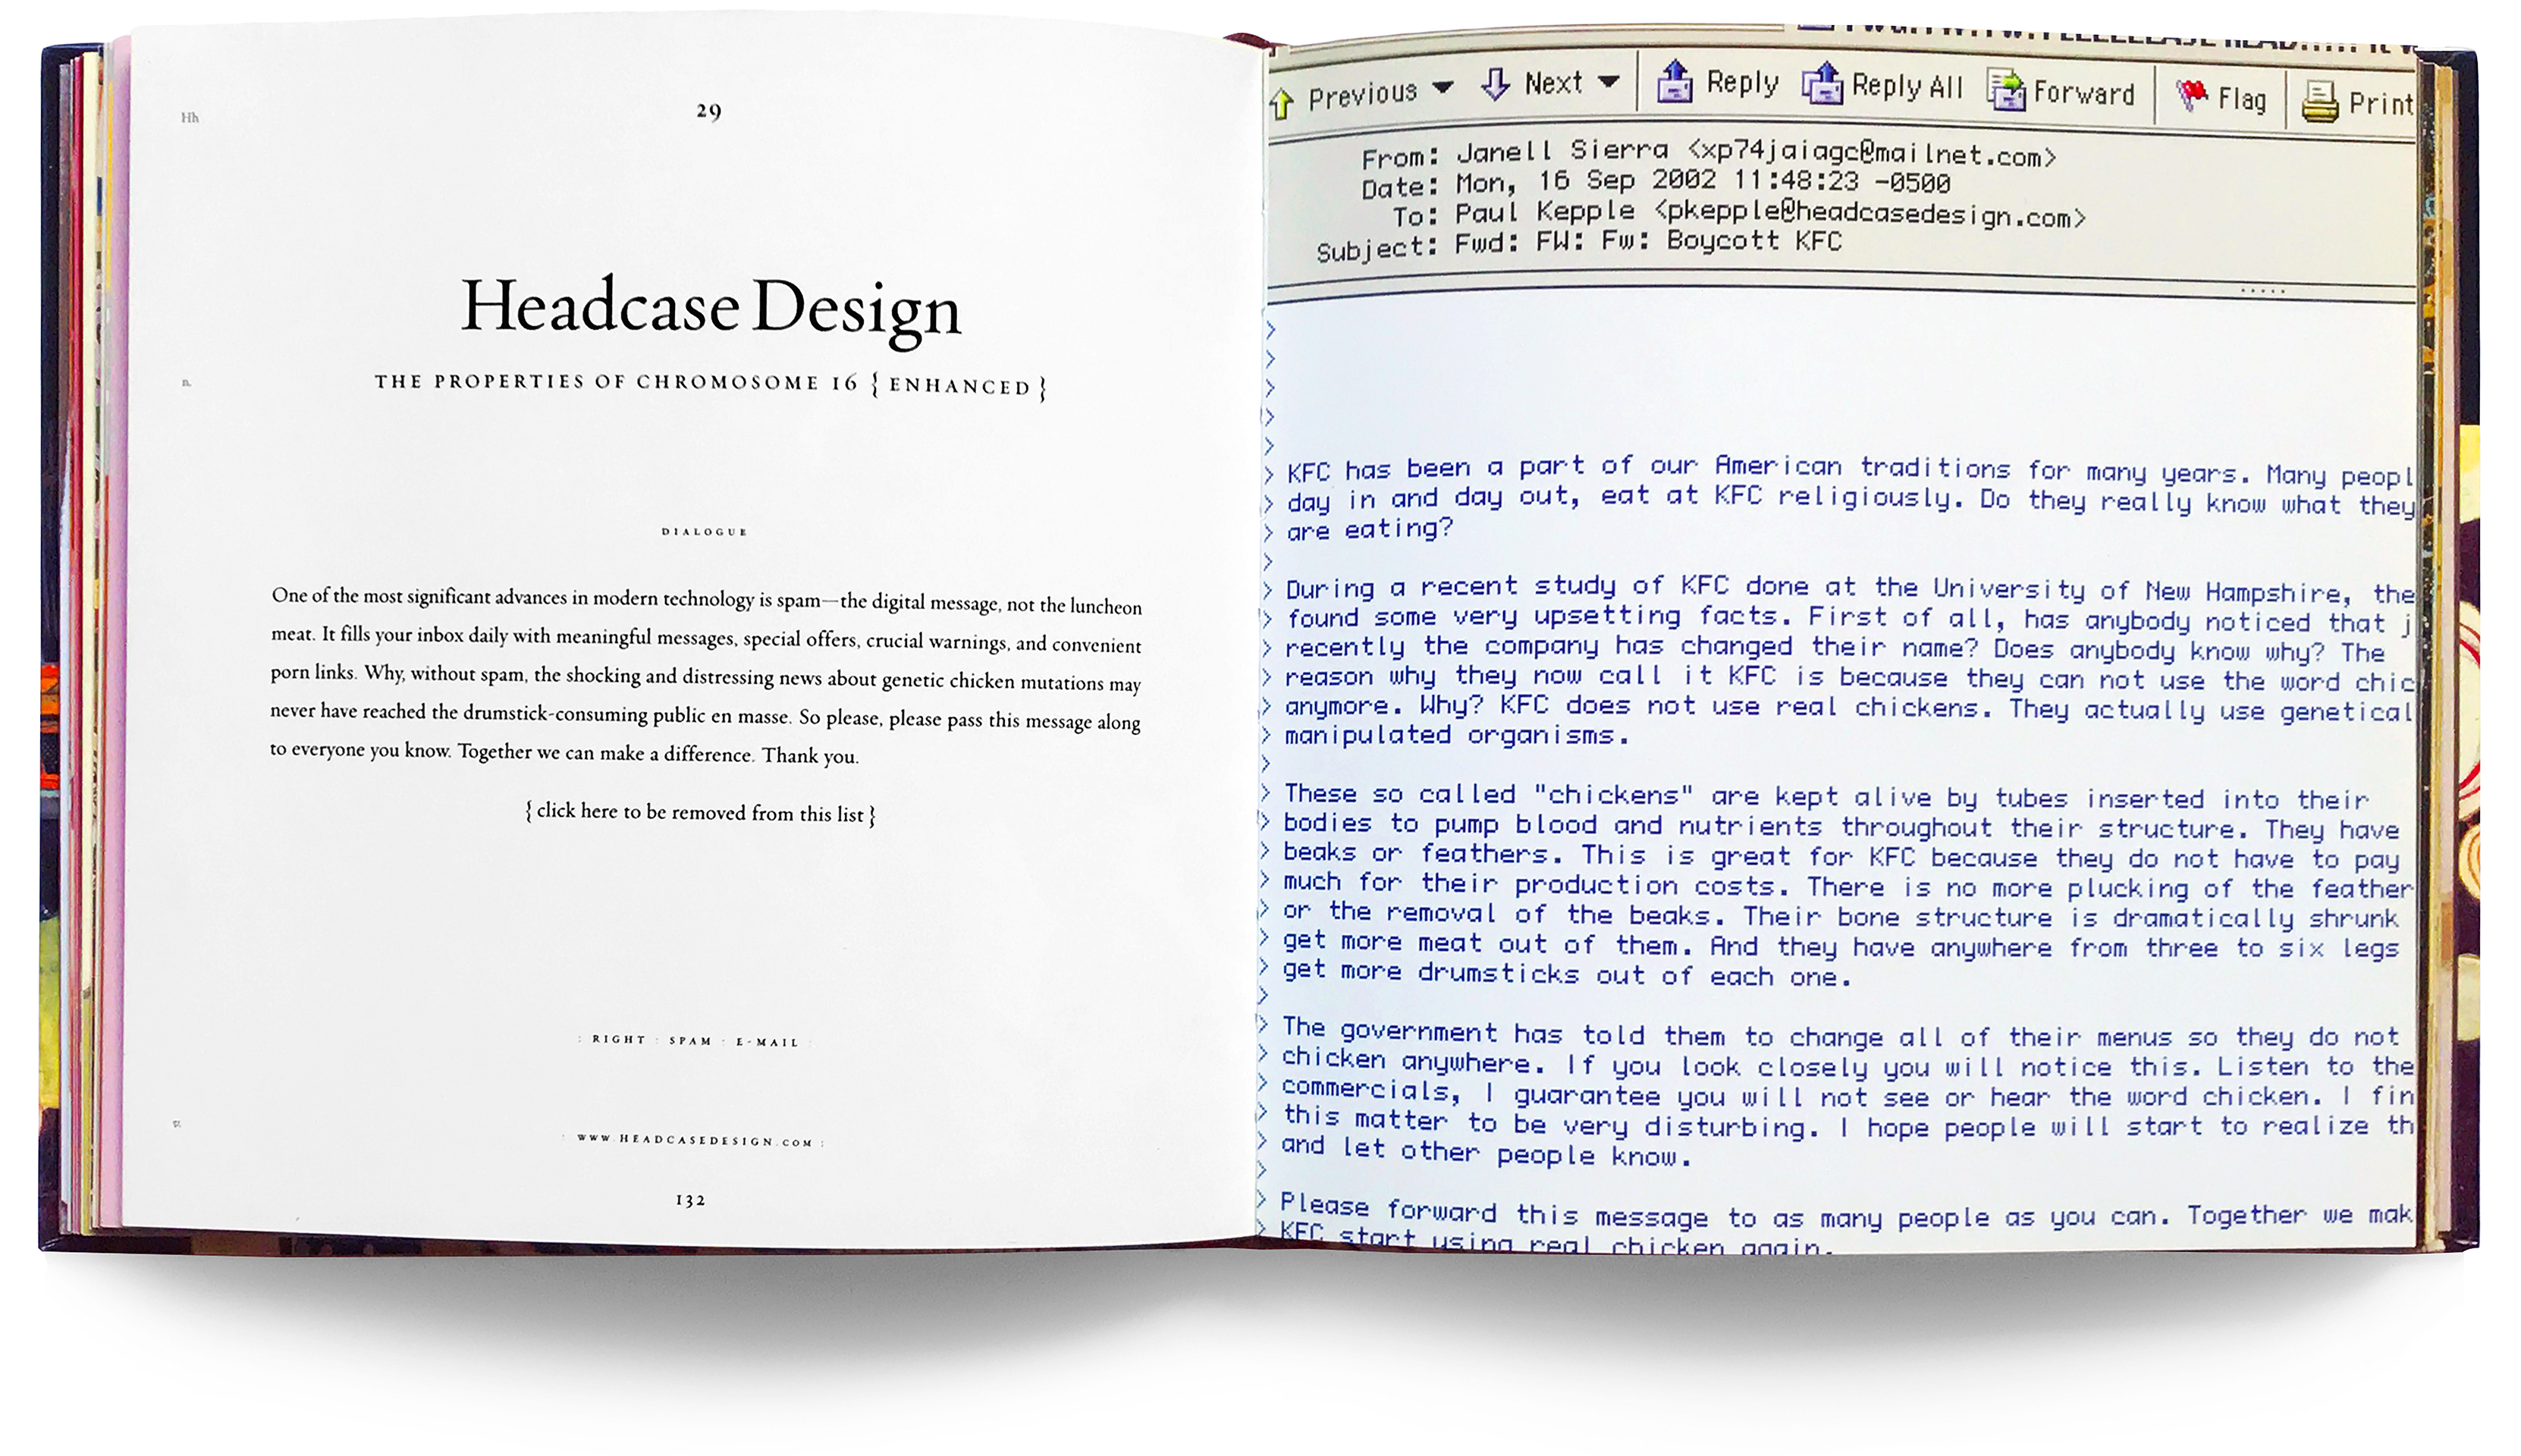 Hh
29
Headcase Design
n.
THE PROPERTIES OF CHROMOSOME 16 { ENHANCED }
DIALOGUE
One of the most significant advances in modern technology is spam—the digital message, not the luncheon
meat. It fills your inbox daily with meaningful messages, special offers, crucial warnings, and convenient
porn links. Why, without spam, the shocking and distressing news about genetic chicken mutations may
never have reached the drumstick-consuming public en masse. So please, please pass this message along
to everyone you know. Together we can make a difference. Thank you.
{ click here to be removed from this list }
: RIGHT : SPAM : E-MAIL :
: WWW.HEADCASEDESIGN.COM :
132
Previous Next Reply Reply All Forward Flag Print
From: Janell Sierra <xp74jaiagc@mailnet.com>
Date: Mon, 16 Sep 2002 11:48:23 -0500
To: Paul Kepple <pkepple@headcasedesign.com>
Subject: Fwd: FW: Fw: Boycott KFC
>
>
>
>
>
> KFC has been a part of our American traditions for many years. Many peopl
> day in and day out, eat at KFC religiously. Do they really know what they
> are eating?
>
> During a recent study of KFC done at the University of New Hampshire, the
> found some very upsetting facts. First of all, has anybody noticed that j
> recently the company has changed their name? Does anybody know why? The
> reason why they now call it KFC is because they can not use the word chic
> anymore. Why? KFC does not use real chickens. They actually use genetical
> manipulated organisms.
>
> These so called "chickens" are kept alive by tubes inserted into their
> bodies to pump blood and nutrients throughout their structure. They have
> beaks or feathers. This is great for KFC because they do not have to pay
> much for their production costs. There is no more plucking of the feather
> or the removal of the beaks. Their bone structure is dramatically shrunk
> get more meat out of them. And they have anywhere from three to six legs
> get more drumsticks out of each one.
>
> The government has told them to change all of their menus so they do not
> chicken anywhere. If you look closely you will notice this. Listen to the
> commercials, I guarantee you will not see or hear the word chicken. I fin
> this matter to be very disturbing. I hope people will start to realize th
> and let other people know.
>
> Please forward this message to as many people as you can. Together we mak
> KFC start using real chicken again.